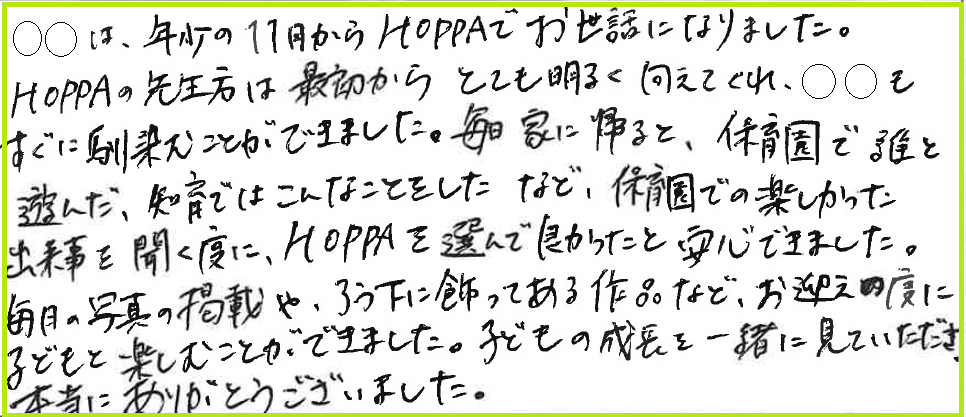 ○○は、年少の11月からHOPPAでお世話になりました。
HOPPAの先生方は最初からとても明るく向えてくれ、○○も
すぐに馴染むことができました。毎日家に帰ると、保育園で誰と
遊んだ、知育ではこんなことをしたなど、保育園での楽しかった
出来事を聞く度に、HOPPAを選んで良かったと安心できました。
毎日の写真の掲載や、ろう下に飾ってある作品など、お迎えの度に
子どもと楽しむことができました。子どもの成長を一緒に見ていただき
本当にありがとうございました。